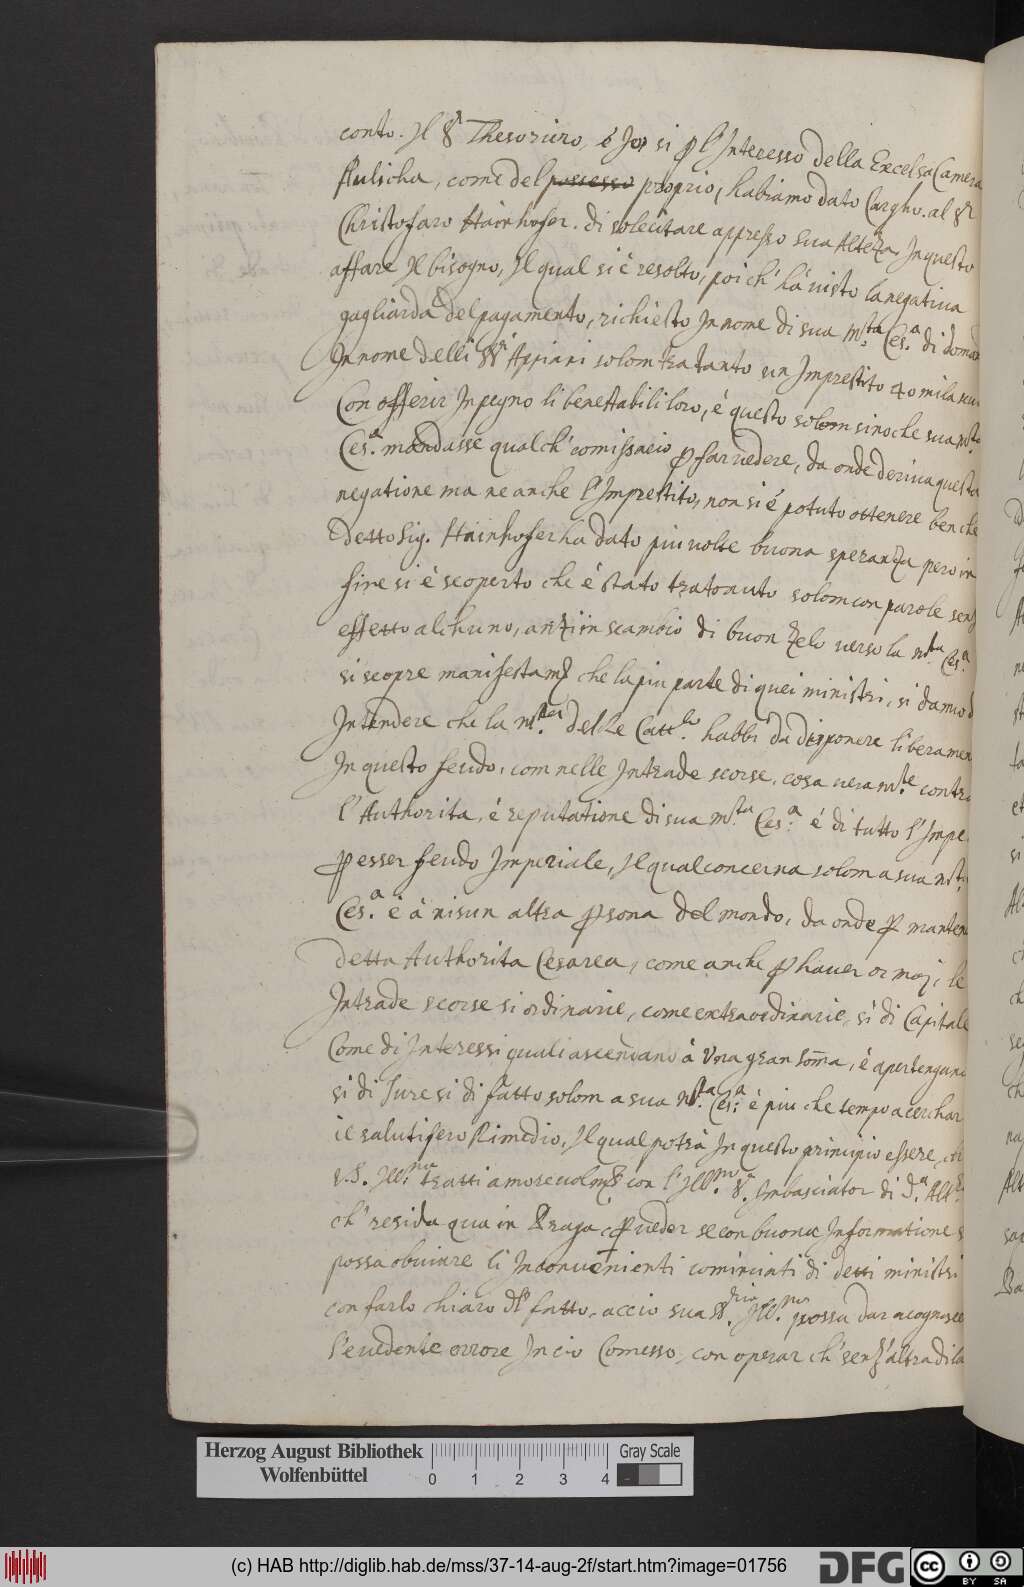 conto. Il Sr. Thesoriero, é Io, si ꝑ l'Interesso della Excelsa Camera
Aulicha, come del possesso proprio, habiamo dato Cargho. al Sr.
Christofaro Hainhofer. di solecitare appresso sua Alteza, In questo
affare Il bisogno, Il qual si é resolto, poi ch' há visto la negativa
gagliarda del pagamento, richiesto In nome di sua M.ta Ces.a di
In nome delli SSri Appiani solom tratanto un Imprestito 40 mila scu
Con offerir In pegno li beni stabili loro, é questo solom sino che sua M.ta
Ces.a mandasse qualch' comissario ꝑ far vedere, da onde deriva questa
negatione ma ne anche l'Imprestito, non si é potuto ottenere ben che
detto Sig. Hainhofer ha dato piu volte buona speranza pero in
fine si é scoperto che é stato tratonuto solom con parole senz
effetto alchuno, anzi in scambio di buon zelo verso la M.ta Ces.a
si scopre manifestam. che la piu parte di quei ministri, si danno d
Intendere che la M.ta delle Catt.he habbi da disponere liberamen
In questo feudo, com nelle Intrade scorse, cosa veram.te contra
l'Authorita, é reputatione di sua M.ta Ces.a é di tutto l'Impe
ꝑ esser feudo Imperiale, Il qual concerna solom a sua M.ta
Ces.a é à nisun altra ꝑsona del mondo, da onde ꝑ manten
detta Authorita Cesarea, come anche ꝑ haver ormaj, le
Intrade scorse si ordinarie, come extraordinarie, si di Capitale
Come di Interessi quali ascendano à Una gran soma, é apertengano
si di Jure si di fatto solom a sua M.ta Ces.a é piu che tempo a cerchar
il salutifero Rimedio, Il qual potrà In questo principio essere, ch
V.S. Ill.ma tratti amorevolm. con l'Ill.mo S.r Imbasciator di d.a Alt.
ch' resida qua in Praga, ꝑ veder se con buona Informatione s
possa obuiare li Inconvenienti cominciati di detti ministri
con farlo chiaro del fatto, accio sua S.ria Ill.ma possa dar a cognosce
l'evedente errore In cio Comesso, con operar ch' senz' altra dila
Herzog August Bibliothek
Wolfenbüttel
0 1 2 3 4
Gray Scale
(c) HAB http://diglib.hab.de/mss/37-14-aug-2f/start.htm?image=01756
DFG
cc BY SA